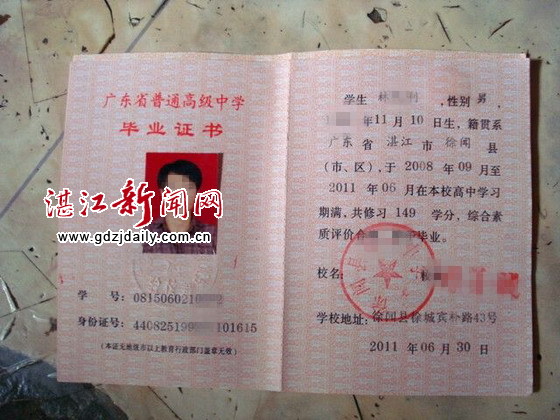 广东省普通高级中学
毕业证书
湛江新闻网
www.gdzjdaily.com.cn
学 号: 0815060210
身份证号: 44082519 101615
(本证无地级市以上教育行政部门盖章无效)
学生 林 ,性别 男,
年 11 月 10 日生,籍贯系
广东 省 湛江 市 徐闻 县
(市、区),于 2008 年 09 月至
2011 年 06 月在本校高中学习
期满,共修习 149 学分,综合素
质评价合 毕业。
校名:
学校地址: 徐闻县徐城宾朴路43号
2011 年 06 月 30 日